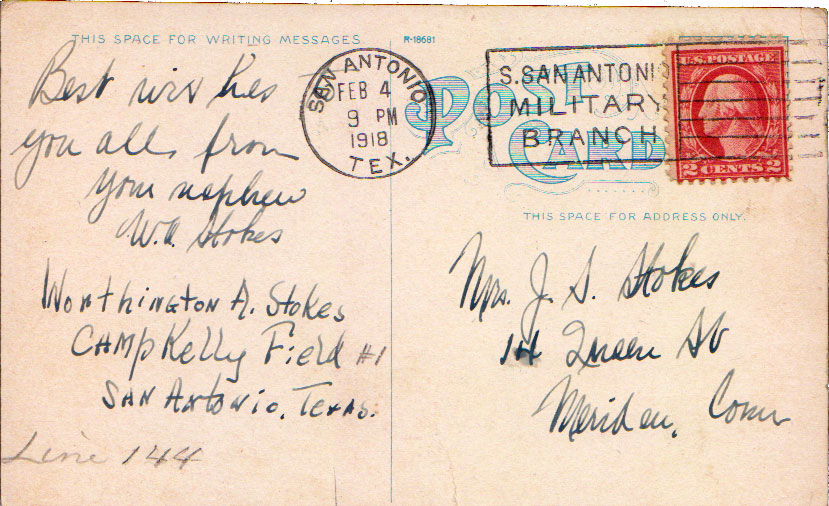 THIS SPACE FOR WRITING MESSAGES
R-18681
Best wishes to
you all from
your nephew
W.A. Stokes
Worthington A. Stokes
Camp Kelly Field #1
San Antonio, Texas.
Line 144
SAN ANTONIO,
FEB 4
9 PM
1918
TEX.
S. SAN ANTONIO
MILITARY
BRANCH
POST
CARD
U.S. POSTAGE
2 CENTS 2
THIS SPACE FOR ADDRESS ONLY.
Mrs. J. S. Stokes
14 Queen St
Meriden, Conn